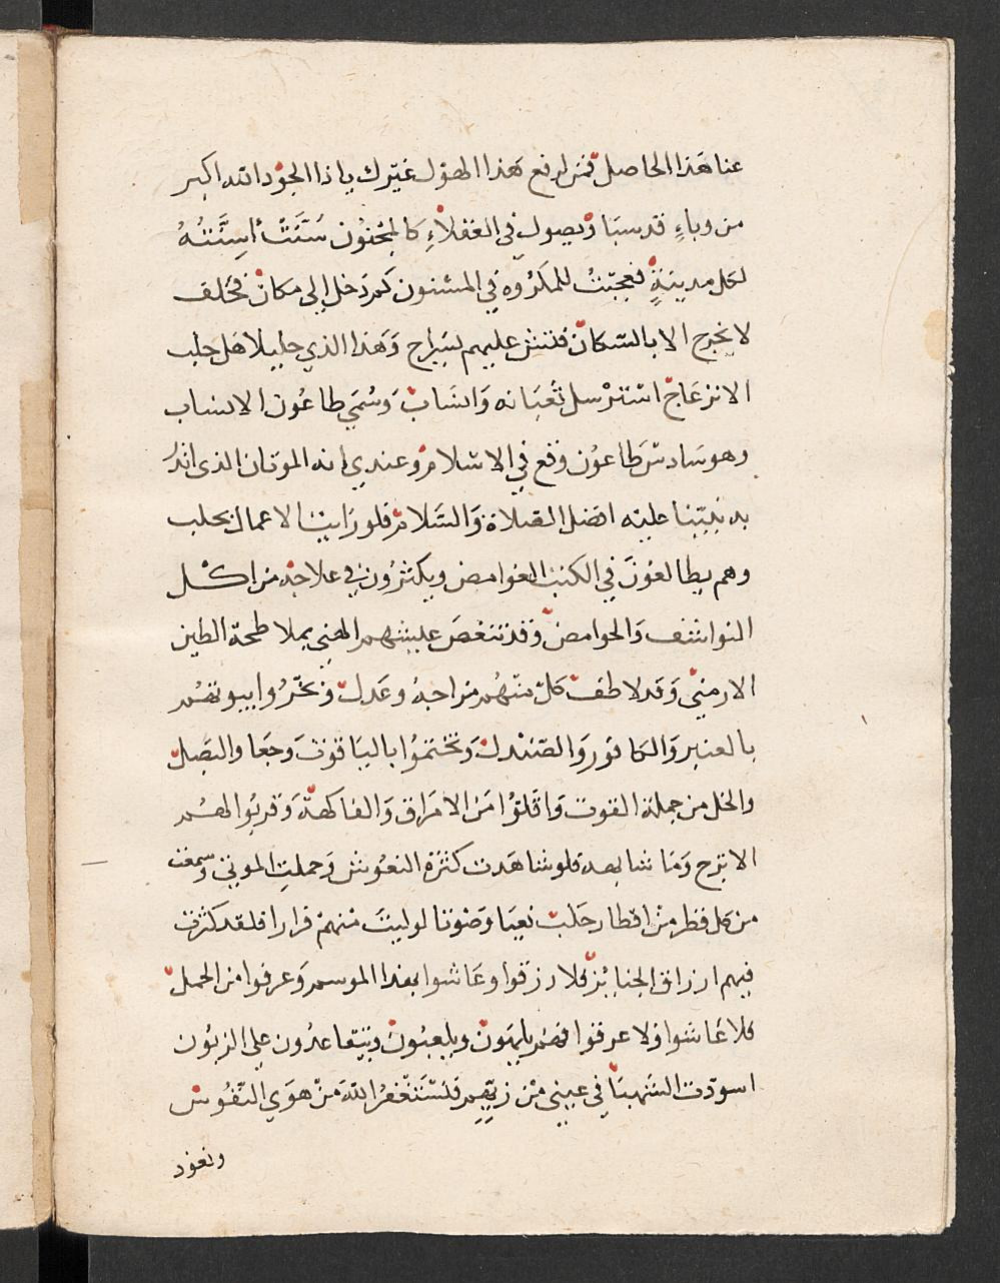 عنا هذا الحاصل فمن لرفع هذا الهول غيرك يا ذا الجود الله اكبر
من وباءٍ قد سبا ويصول في العقلاءِ كالمجنون سُنَّتْ أَسِنَّتُهُ
لكل مدينةٍ فعجبتُ للمكروه في المسنون كم دخل الى مكان فحلف
لا يخرج الا بالسكان ففتش عليهم بسراج وهذا الذي جليلا هل جلب
الانزعاج استرسل ثعبانه وانساب وسمي طاعون الانساب
وهو سادس طاعون وقع في الاسلام وعندي انه الموتان الذى انذر
به نبينا عليه افضل الصلاة والسلام فلو رايت الاعمال بحلب
وهم يطالعون في الكتب الغوامض ويكثرون في علاجه من اكل
النواشف والحوامض وقد تنغص عيشهم الهني بملاطحة الطين
الارمني وقد لاطف كل منهم مزاجه وعدل وبخروا بيوتهم
بالعنبر والكافور والصندل وتختموا بالياقوت وجعا والبصل
والخل من جملة القوت واقلوا من الامراق والفاكهة وقربوا لهم
الاترج وما شابهه فلو شاهدت كثرة النعوش وحملت الموتى وسمعت
من كل قطر من اقطار حلب نعيا وصوتا لوليت منهم فرارا فلقد كثرت
فيهم ارزاق الجنايز فلا رزقوا وعاشوا بهذا الموسم وعرفوا من الحمل
فلا عاشوا ولا عرقوا فهم يلهون ويلعبون ويتقاعدون على الزبون
اسودت الشهبا في عيني من زيهم فلستغفر الله من هوى النفوس
ونعوذ